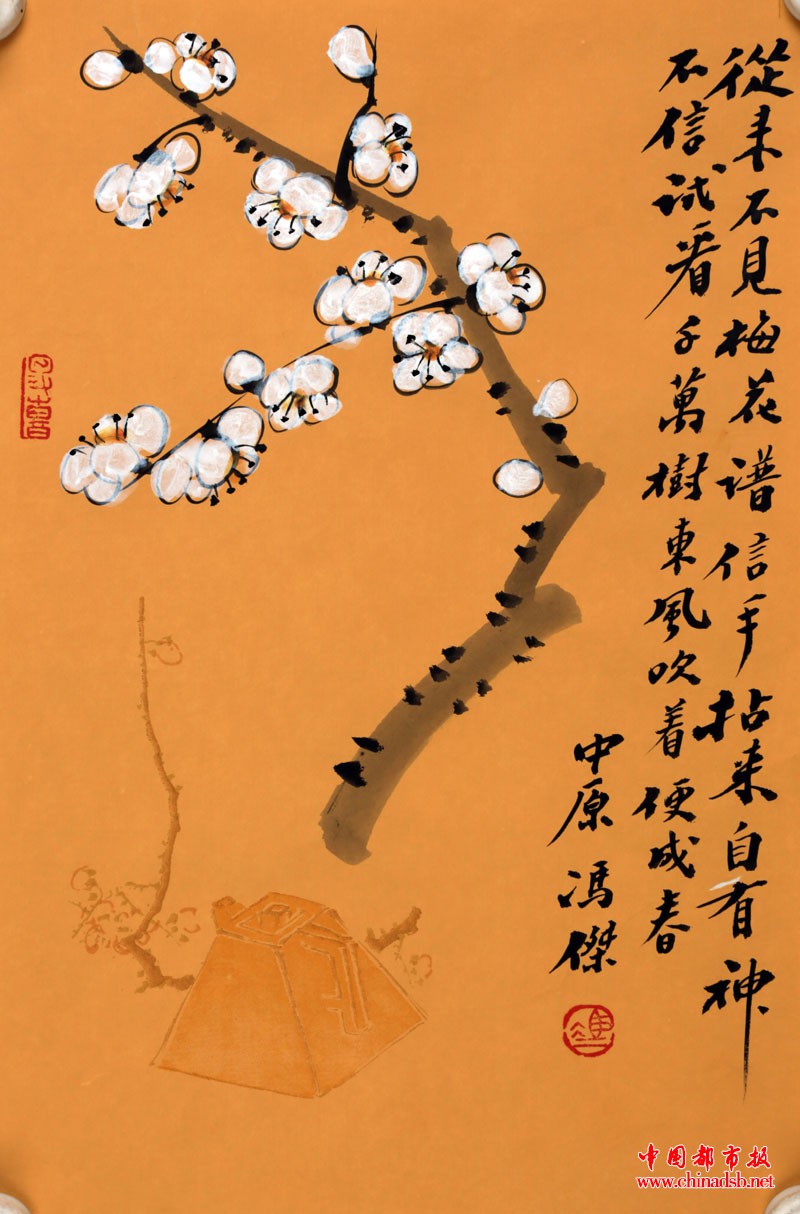 從来不見梅花谱信手拈来自有神
不信試看千萬樹東風吹着便成春
中原馮傑
中国都市报
www.chinadsb.net